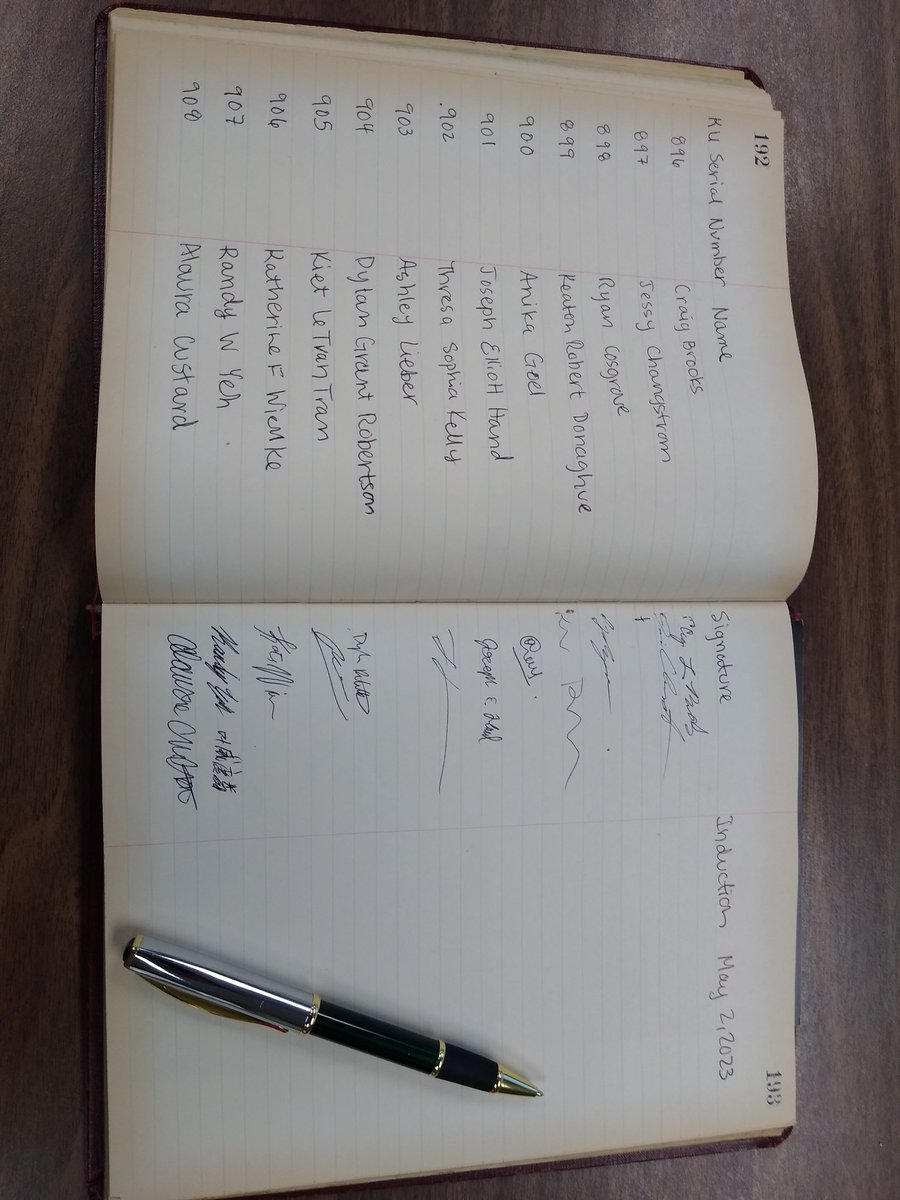 192
KU Serial Number Name
896 Craig Brooks
897 Jessy Changstrom
898 Ryan Cosgrove
899 Keaton Robert Donaghue
900 Anika Goel
901 Joseph Elliott Hand
902 Thresa Sophia Kelly
903 Ashley Lieber
904 Dylan Grant Robertson
905 Kiet Le Tran Tran
906 Katherine F Wiemke
907 Randy W Yeh
908 Alaura Custard
193
Signature Induction May 2, 2023
Joseph E. Hand
Randy Yeh